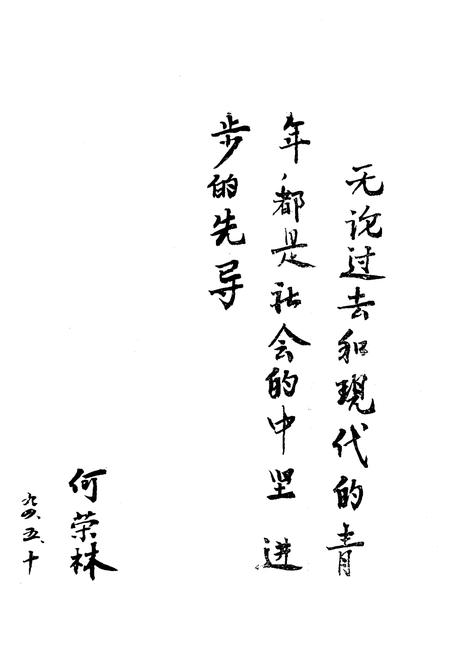 无论过去和现代的青
年，都是社会的中坚 进
步的先导
何荣林
九四、五、十